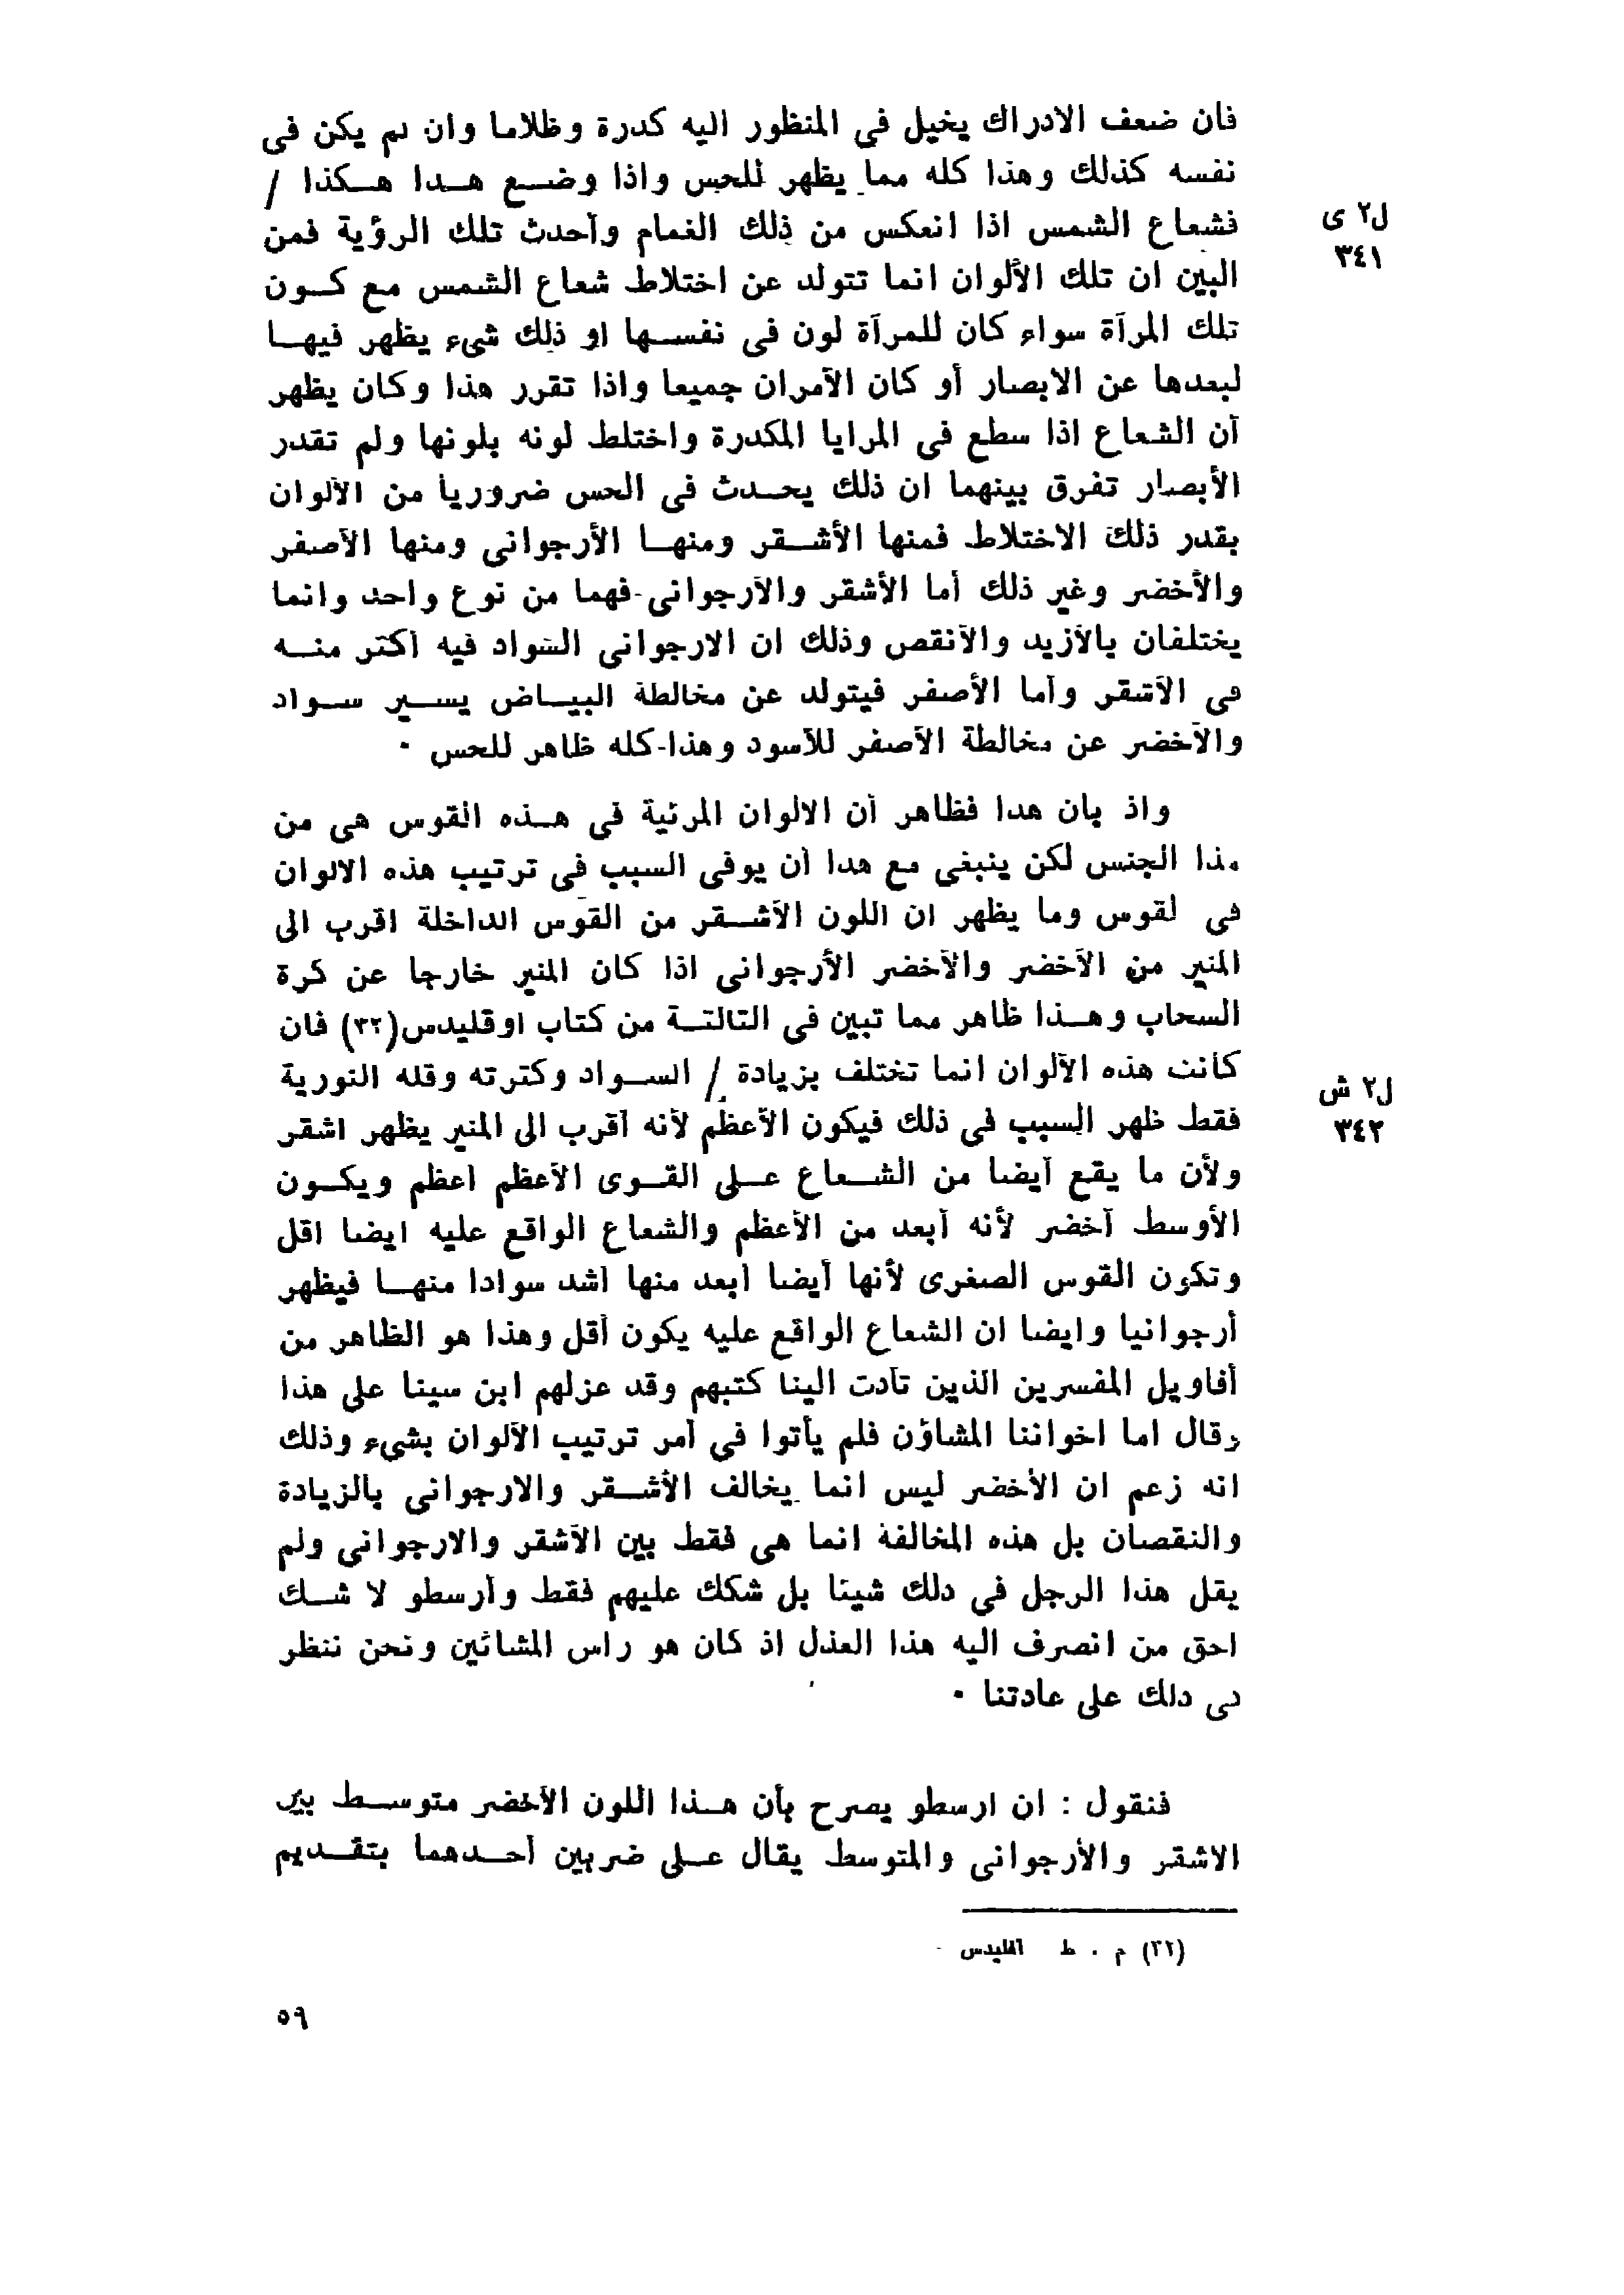 فان ضعف الادراك يخيل في المنظور اليه كدرة وظلاما وان لم يكن فى
نفسه كذلك وهذا كله مما يظهر للحس واذا وضع هدا هكذا /
ل٢ ى
٣٤١
فشعاع الشمس اذا انعكس من ذلك الغمام وأحدث تلك الرؤية فمن
البين ان تلك الألوان انما تتولد عن اختلاط شعاع الشمس مع كون
تلك المرآة سواء كان للمرآة لون فى نفسها او ذلك شىء يظهر فيها
لبعدها عن الابصار أو كان الأمران جميعا واذا تقرر هذا وكان يظهر
أن الشعاع اذا سطع فى المرايا المكدرة واختلط لونه بلونها ولم تقدر
الأبصار تفرق بينهما ان ذلك يحدث فى الحس ضروريا من الألوان
بقدر ذلك الاختلاط فمنها الأشقر ومنها الأرجوانى ومنها الأصفر
والأخضر وغير ذلك أما الأشقر والأرجوانى فهما من نوع واحد وانما
يختلفان بالأزيد والأنقص وذلك ان الارجوانى السواد فيه أكتر منه
فى الأشقر وأما الأصفر فيتولد عن مخالطة البياض يسير سواد
والأخضر عن مخالطة الأصفر للأسود وهذا كله ظاهر للحس ٠
واذ بان هدا فظاهر أن الالوان المرئية في هذه القوس هى من
هذا الجنس لكن ينبغى مع هدا أن يوفى السبب فى ترتيب هذه الالوان
فى لقوس وما يظهر ان اللون الأشقر من القوس الداخلة اقرب الى
المنير من الأخضر والأخضر الأرجوانى اذا كان المنير خارجا عن كرة
السحاب وهذا ظاهر مما تبين فى التالتة من كتاب اوقليدس(٣٢) فان
كانت هذه الألوان انما تختلف بزيادة / السواد وكترته وقله النورية
ل٢ ش
٣٤٢
فقط ظهر السبب فى ذلك فيكون الأعظم لأنه أقرب الى المنير يظهر اشقر
ولأن ما يقع أيضا من الشعاع على القوى الأعظم اعظم ويكون
الأوسط أخضر لأنه أبعد من الأعظم والشعاع الواقع عليه ايضا اقل
وتكون القوس الصغرى لأنها أيضا ابعد منها اشد سوادا منها فيظهر
أرجوانيا وايضا ان الشعاع الواقع عليه يكون أقل وهذا هو الظاهر من
أفاويل المفسرين الذين تأدت الينا كتبهم وقد عزلهم ابن سينا على هذا
وقال اما اخواننا المشاؤن فلم يأتوا فى أمر ترتيب الألوان بشىء وذلك
انه زعم ان الأخضر ليس انما يخالف الأشقر والارجوانى بالزيادة
والنقصان بل هذه المخالفة انما هى فقط بين الأشقر والارجوانى ولم
يقل هذا الرجل في دلك شيئا بل شكك عليهم فقط وأرسطو لا شك
احق من انصرف اليه هذا العذل اذ كان هو راس المشائين ونحن ننظر
فى دلك على عادتنا ٠
فنقول : ان ارسطو يصرح بأن هذا اللون الأخضر متوسط بين
الاشقر والأرجوانى والمتوسط يقال على ضربين أحدهما بتقديم
(٣٢) م ٠ ط اقليدس
٥٩